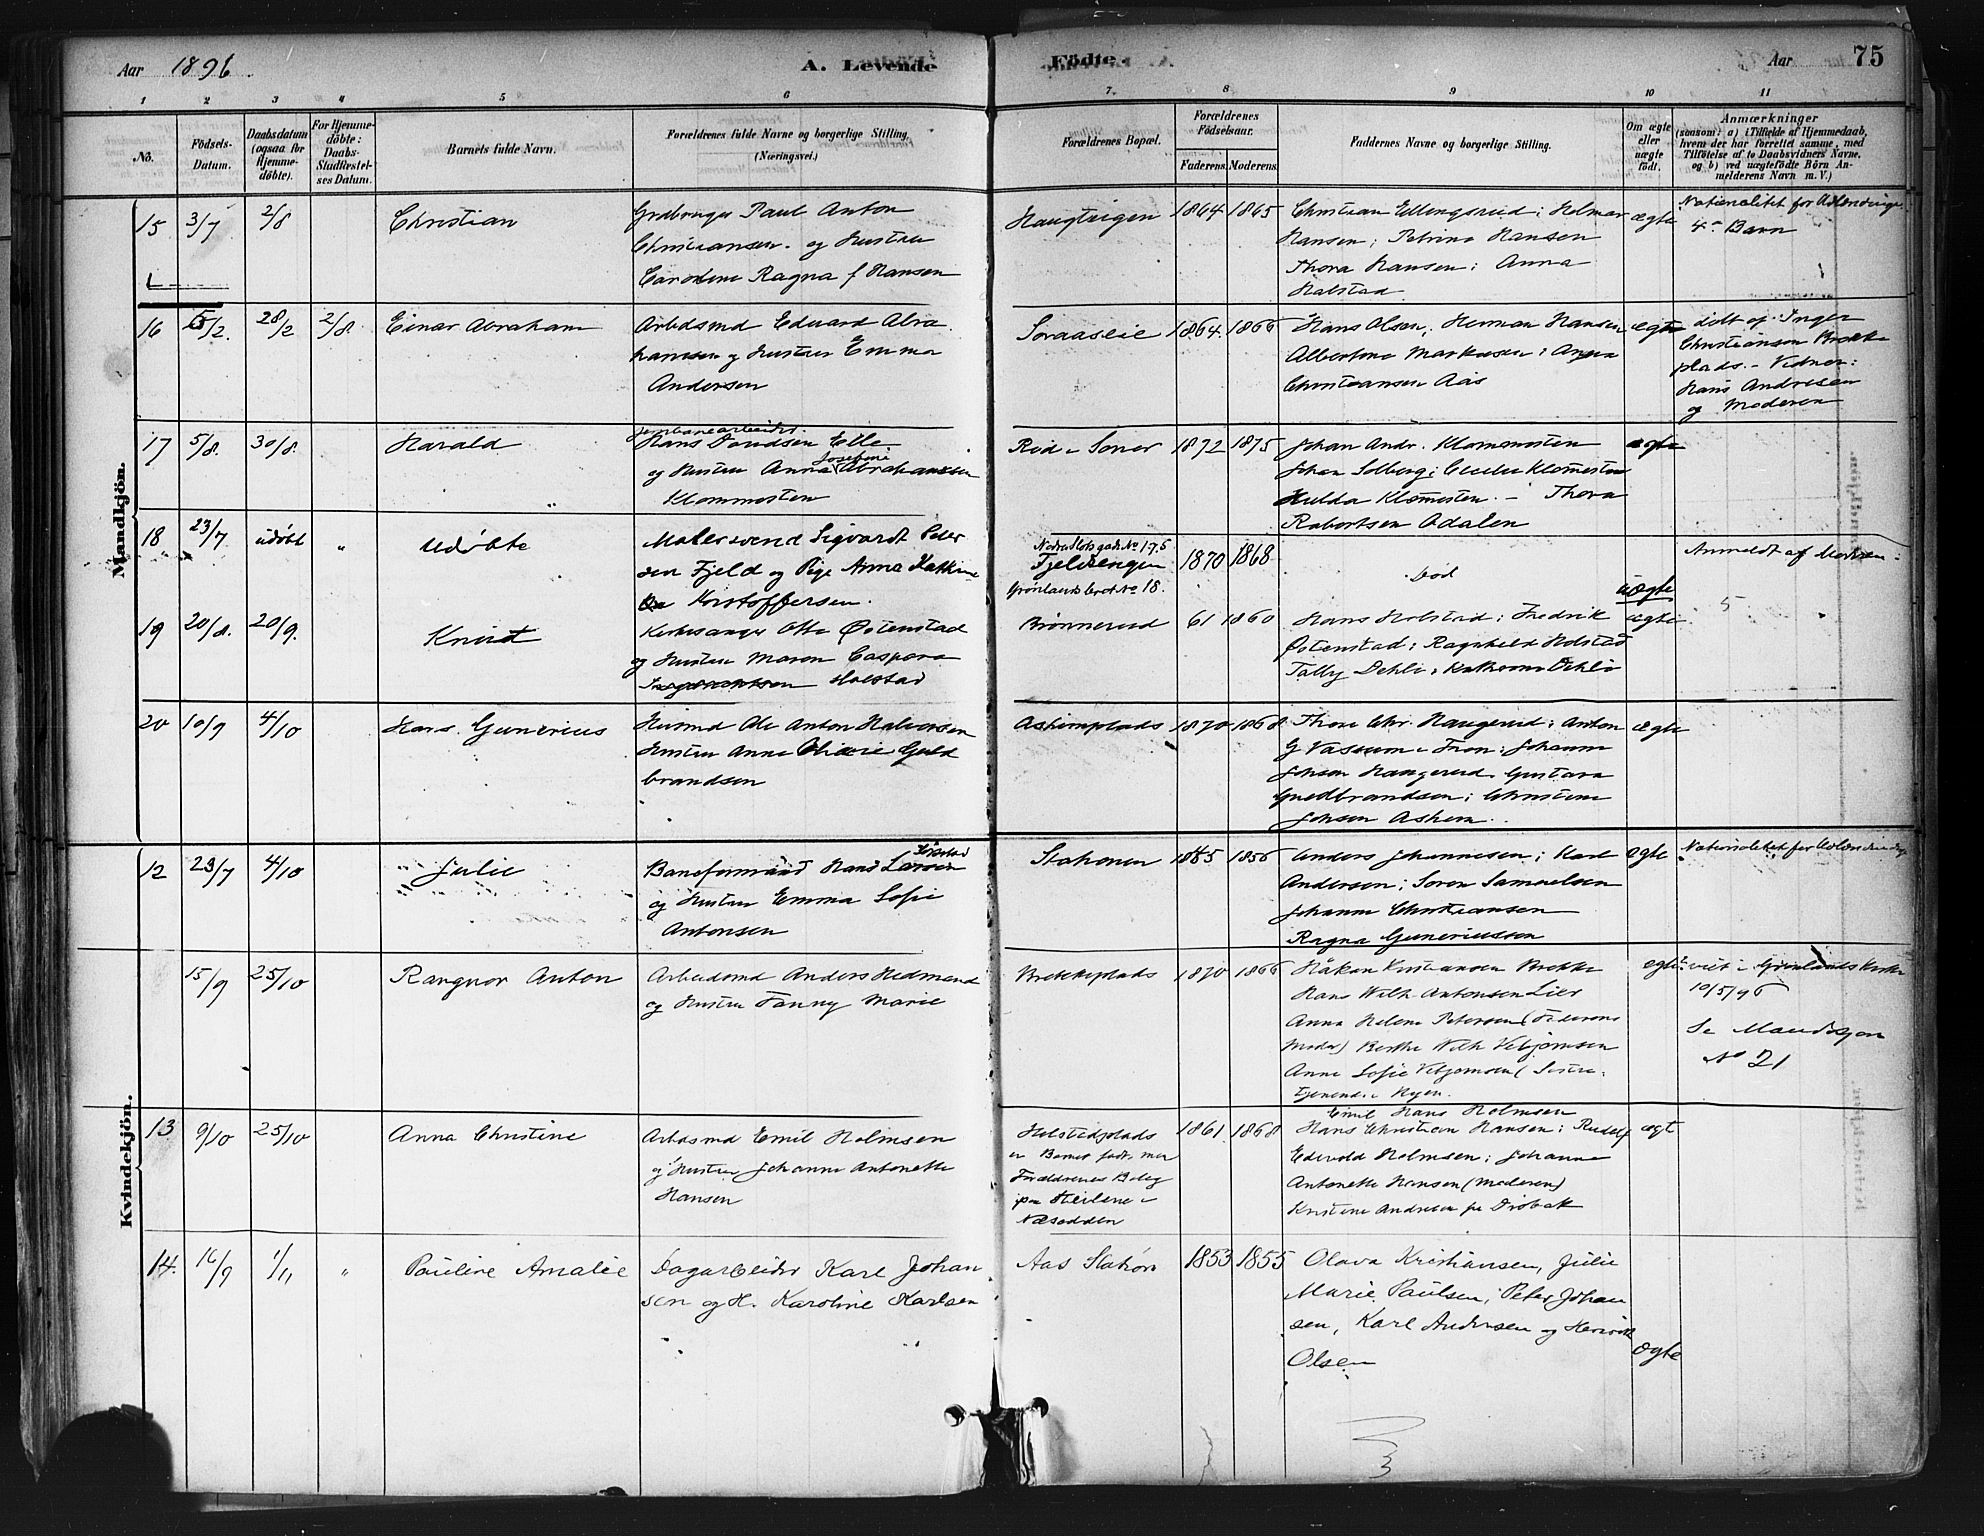 Aar 1896.
A. Levende
Födte.
Aar
75
1 2 3 4 5 6 7. 8 9 10 11
No.
Födsels-
Datum.
Daabsdatum
(ogsaa for
Hjemme-
döbte).
For Hjemme-
döbte:
Daabs-
Stadfæstel-
ses Datum.
Barnets fulde Navn.
Forældrenes fulde Navne og borgerlige Stilling.
(Næringsvei.)
Forældrenes Bopæl.
Forældrenes
Födselsaar.
Faderens.
Moderens.
Faddernes Navne og borgerlige Stilling.
Om ægte
eller
uægte
födt.
Anmærkninger
(saasom: a) i Tilfælde af Hjemmedaab,
hvem der har forrettet samme, med
Tilföielse af to Daabsvidners Navne,
og b) ved uægtefödte Börn An-
melderens Navn m. V.)
Mandkjön.
15 3/7 2/8 Christian
Grdbruger Paul Anton
Christiansen. og Hustru
Caroline Ragna f Hansen
Haugteigen 1864 1865
Christian Ellingsrud; Helmer
Hansen; Petrine Hansen
Thora Hansen; Anna
Halstad
ægte
Nationalitet for Udlændinge
4de Barn
16 5/2. 28/2 2/8 Einar Abraham
Arbdsmd Edvard Abra
hamsen og Hustru Emma
Andersen
Soraaseie 1864. 1866
Hans Olsen; Herman Hansen
Albertine Markusen; Anna
Christiansen Aas
ægte
døbt af Inger
Christianson Brække
plads. - Vidner:
Hans Andresen
og Moderen
17 5/8. 30/8. Harald
Jernbanearbeider.
Hans Davidsen Elle
og Hustru Anna Josefine Abrahamsen
Klommesten
Rud i Soner 1872 1875
Johan Andr. Klommesten
Johan Solberg; Cecilie Klommesten
Hulda Klommesten. - Thora
Robertsen Odalen
ægte
18 23/7 udøbt " Udøbte
Malersvend Sigvardt Peter
sen Fjeld og Pige Anna Kathrine
Kristoffersen.
Nedre Slotsgade No 17, 5
Fjeldsengen
Grønlandsleret No 18.
1870 1868
Død
uægte
Anmeldt af Moderen.
19 20/8. 20/9. Knut
Kirkesanger Otto Østenstad
og Hustru Maren Caspara
Holstad
Brønnerud 61 1860
Hans Holstad; Fredrik
Østenstad; Ragnhild Holstad
Tolly Dehli; Kathrine Dehli
ægte
5
20 10/9 4/10 Hans. Gunerius
Husmd Ole Anton Halvorsen
Hustru Anne Olavie Guld
brandsen
Askimplads 1870 1868
Thore Chr. Haugerud; Anton
G Vassum i Fron; Johanne
Johsen Haugerud. Gustava
Gudbrandsen; Christine
Johsen Askim.
ægte
12 23/7 4/10 Julie
Baneformand Hans Larsen
og Hustru Emma Sofie
Antonsen
Stationen 1845 1856
Anders Johannesen; Karl
Andersen; Søren Samuelsen
Johanne Christiansen
Ragna Gunerieussen
ægte
Nationalitet for Udlændinge
Kvindekjön.
15/9 25/10 Rangnar Anton
Arbeidsmd Anders Hedmand
og Hustru Fanny Marie
Brekkeplads 1870 1866
Håkon Kristiansen Brekke
Hans Wilh. Antonsen Lier
Anna Helene Petersen (Faderens
Moder) Berthe Wilh Vebjørnsen
Anne Sofie Vebjørnsen (Søstre.
tjenende i Byen.
ægte
viet i Grønlands Kirke
10/5/96
Se Mandkjøn
No 21
13 9/10 25/10 Anna Christine
Arbdsmd Emil Holmsen
og Hustru Johanne Antonette
Hansen
Holstadplads
er Barnet født, men
Forældrenes Bolig
paa Helene i
Næsodden
1861 1868
Emil Hans Holmsen
Hans Christian Hansen; Rudolf
Edevold Holmsen; Johanne
Antonette Hansen (Moderen)
Kristine Andresen fra Drøbak
ægt
14. 16/9 1/11 " Pauline Amalie
Dagarbeider Karl Johan
sen og H. Karoline Karlsen
Aas Station 1853 1855
Olava Kristiansen, Julie
Marie Paulsen, Peter Johan
sen, Karl Andersen og Henrik
Olsen
ægte